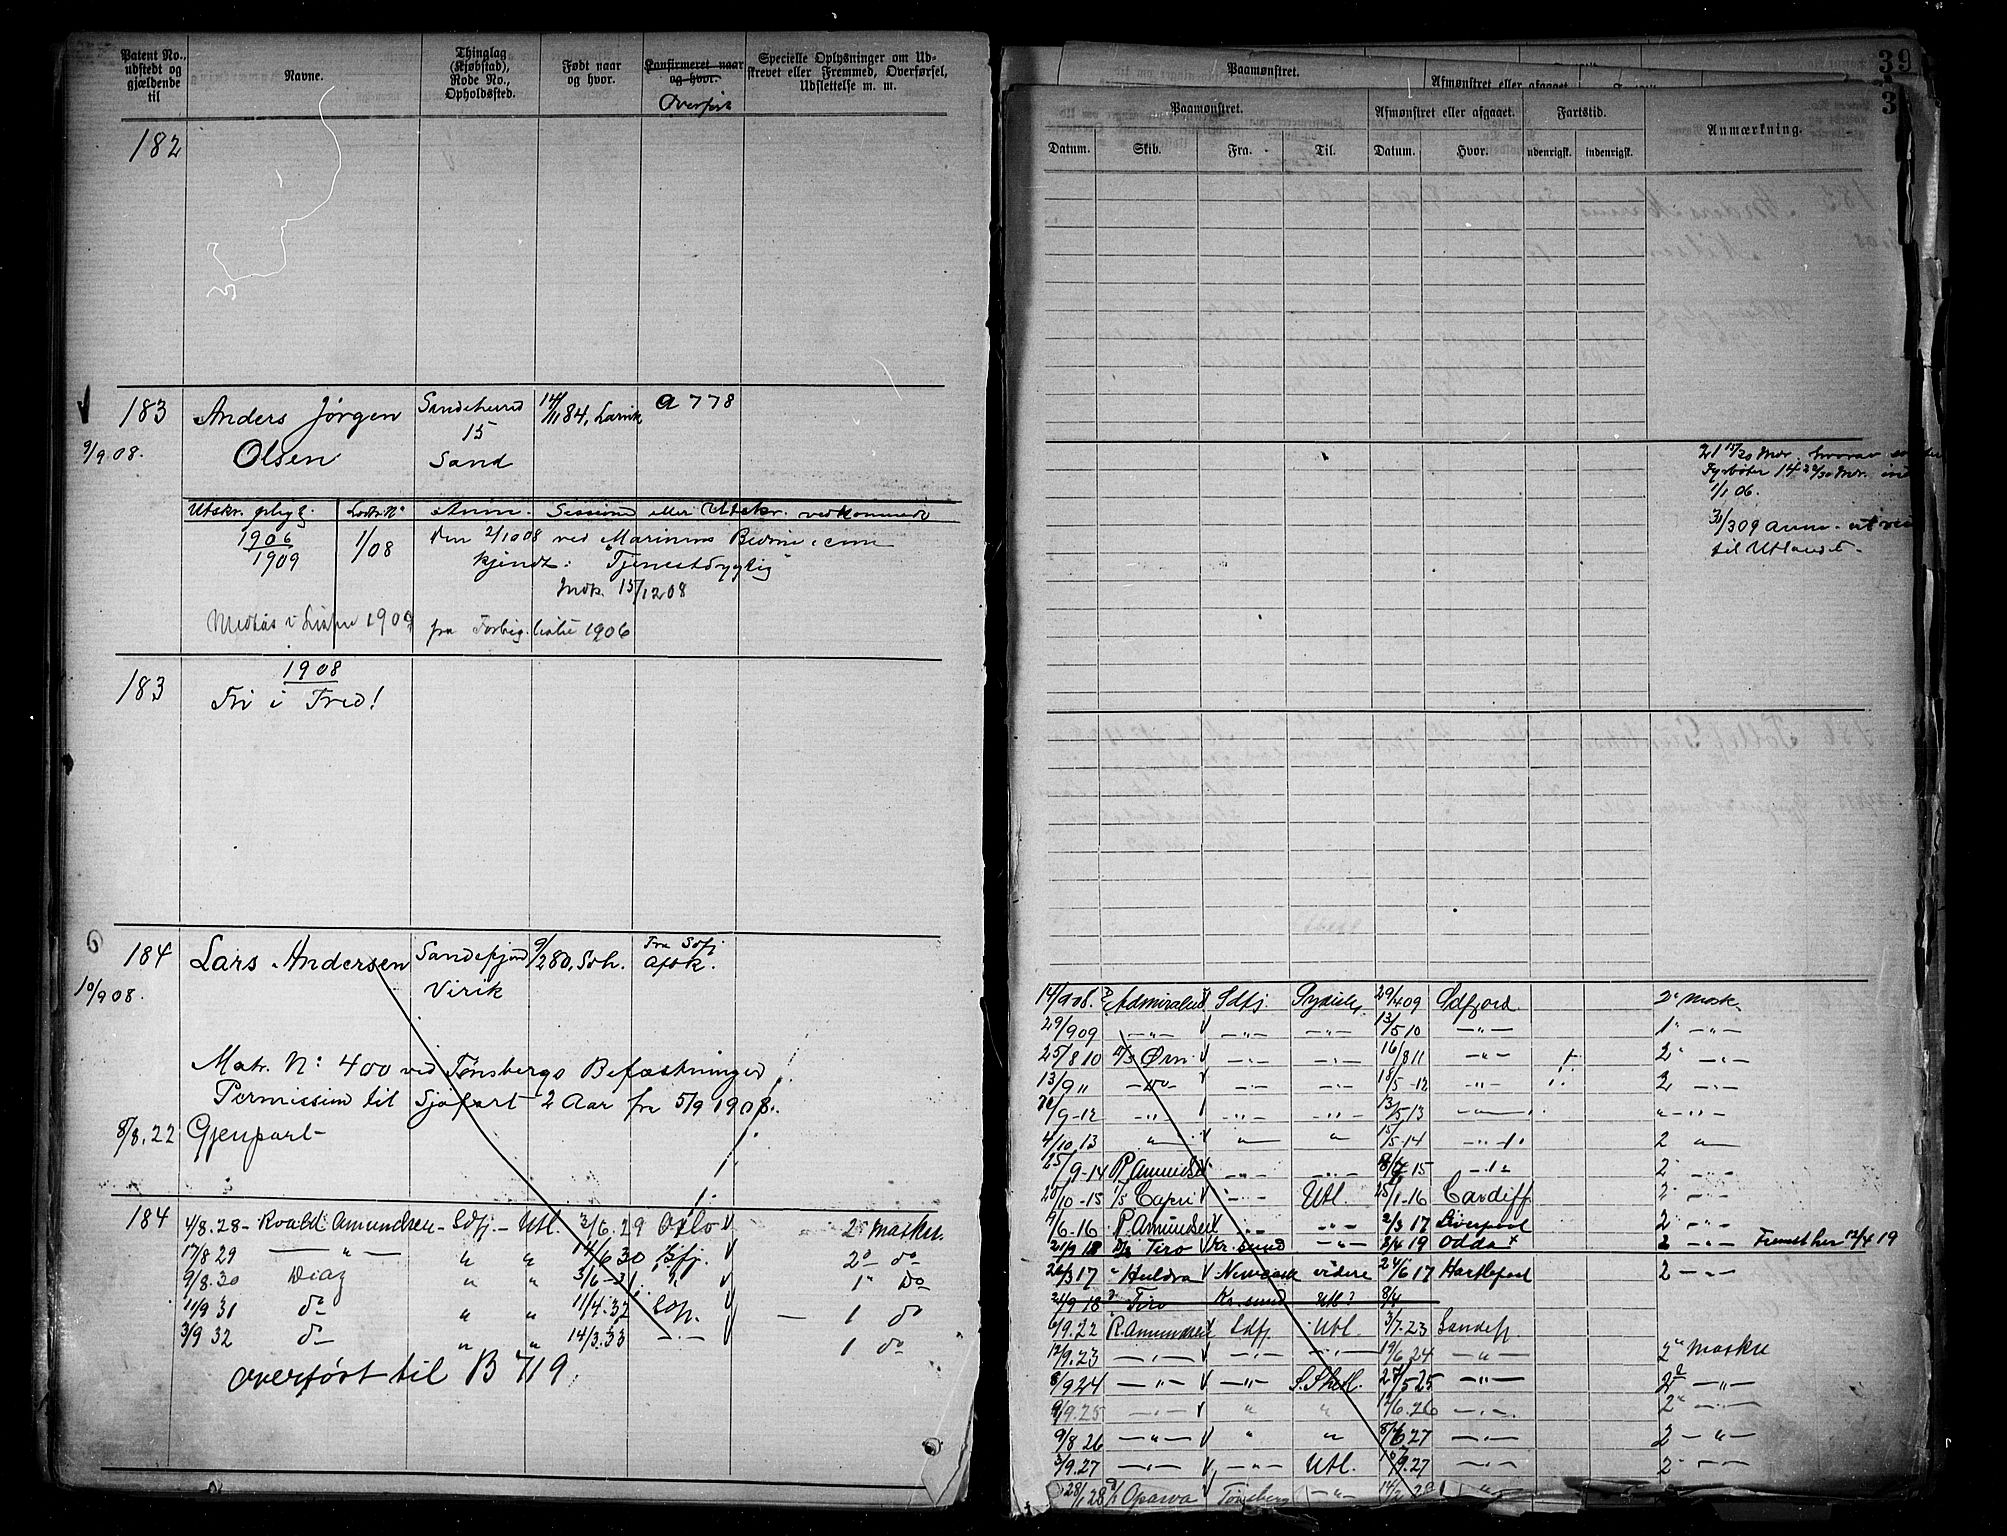 Patent No., udstedt og gjældende til
Navne.
Thinglag (Kjøbstad), Rode No., Opholdssted.
Født naar og hvor.
Konfirmeret naar og hvor.
Overført
Specielle Oplysninger om Udskrevet eller Fremmed, Overførsel, Udslettelse m. m.
182
183 Anders Jørgen Sandeherred 14/11 84, Larvik a 778
9/9.08. Olsen 15
Sand
Utskr. pligtg. Lodtr. No Anm. Sessions eller Utskr. vedkommende
1906 1/08 den 2/10 08 ved Marinens
1909 kjendt: "Tjenestdygtig"
Mdk. 15/12 08
1909 fra 1906
1908
183 Fri i Fred!
184 Lars Andersen Sandefjord 9/2 80, Sdh. Fra Sdfj
10/9 08. Virik afsk.
Matr. No: 400 ved Tønsbergs Befæstninger
Permission til Sjøfart 2 Aar fra 5/9 1908.
8/8.22 Gjenpart
184 4/8.28 - Roald Amundsen - Sdfj - Utl. 3/6.29 Oslo V 2 maskn.
17/8 29 — " — " " 14/6 30 Sdfj. V 2 do
9/8.30 Diaz " " 3/6-31 " V 1 Do
11/9 31 do " " 11/4.32 Sdfj. V — 1 do
3/9 32 do " " 14/3.33 — " — V 1 do
overført til B 719
39
Paamønstret.
Afmønstret eller afgaaet.
3
Paamønstret. Afmønstret eller afgaaet. Fartstid. Anmærkning.
Datum. Skib. Fra. Til. Datum. Hvor. udenrigsk. indenrigsk.
21 15/30 Mdr. hvorav
Fyrbøter 14 Mdr.
1/1 06.
3/3 09 anm.
til Utlandet.
14/9 08. Admiralen V Sdfj 29/4 09 Sdfjord 2 mask.
29/9 09 — " — V — " — — " — 13/5 10 — " — 1 — " —
25/8 10 Ørn V — " — — " — 16/8 11 — " — 2 — " —
13/9 11 — " — V — " — — " — 18/5 - 12 — " — 2 — " —
/9 - 12 — " — — " — — " — 13/5 13 — " — " — " —
4/10 13 " V " " 15/5 - 14 — " — 2 "
25/9 - 14 R. Amundsen — " — — " — 8/7 15 — " — 2 — " —
20/10 - 15 Capri V — " — Utl. 25/1 - 16 Cardiff 2 — " —
9/6 - 16 R. Amundsen — " — — " — 2/3 17 Liverpool 2 — " —
21/9 18 Tiro V Kr. sund — " — 3/4 19 Odda 2 — " — Fremst her 12/4 19
26/3 17 " Huldra V Newcastle videre 24/6 17 Hartlepool 2 — " —
21/9 18 Tiro Kr. sund Utl. 8/4
6/9.22 R. Amundsen Sdfj Utl. 3/7.23 Sandefj.
12/9.23 — " — V — " — — " — 19/6 24 — " — 2 maskn
8/9 24 — " — V — " — S. Shetl. 27/5 25 — " — 2 — " —
9/9.25 — " — V " " 12/6.26 — " — 2 — " —
9/8 26 — " — V " " 8/6 27 — " — 2 — " —
3/9.27 — " — V — " — Utl. — " — 2 — " —
28/1 28 Opawa V Tønsberg — " —